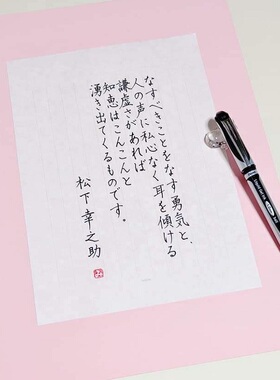 なすべきことをなす勇気と、
人の声に私心なく耳を傾ける
謙虚さがあれば
知恵はこんこんと
湧き出てくるものです。
松下幸之助